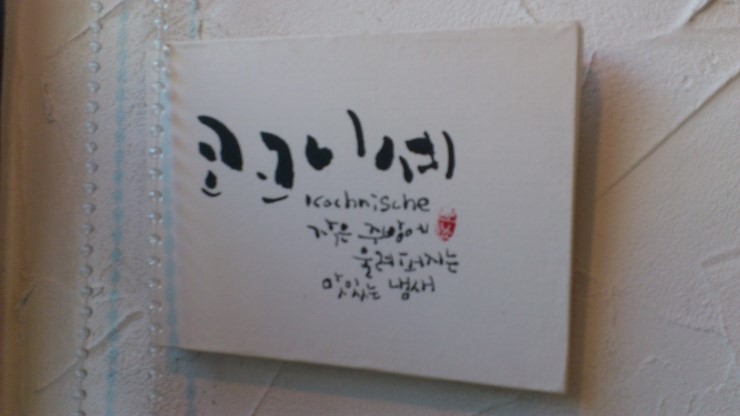 코코니쉐
Kochnische
작은 주방에
울려퍼지는
맛있는 냄새